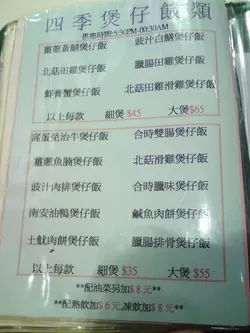 四季煲仔飯類
供應時間:5:30PM-00:30AM
薑蔥黃鱔煲仔飯 豉汁白鱔煲仔飯
北菇田雞煲仔飯 臘腸田雞煲仔飯
鮮膏蟹煲仔飯 北菇滑雞煲仔飯
以上每款 細煲 $45 大煲 $65
窩蛋免治牛煲仔飯 合時雙腸煲仔飯
薑蔥魚腩煲仔飯 北菇滑雞煲仔飯
豉汁肉排煲仔飯 合時臘味煲仔飯
南安油鴨煲仔飯 鹹魚肉餅煲仔飯
土魷肉餅煲仔飯 臘腸排骨煲仔飯
以上每款 細煲 $35 大煲 $55
**配油菜另加$8元**
**配熱飲加$6元,凍飲加$8元**